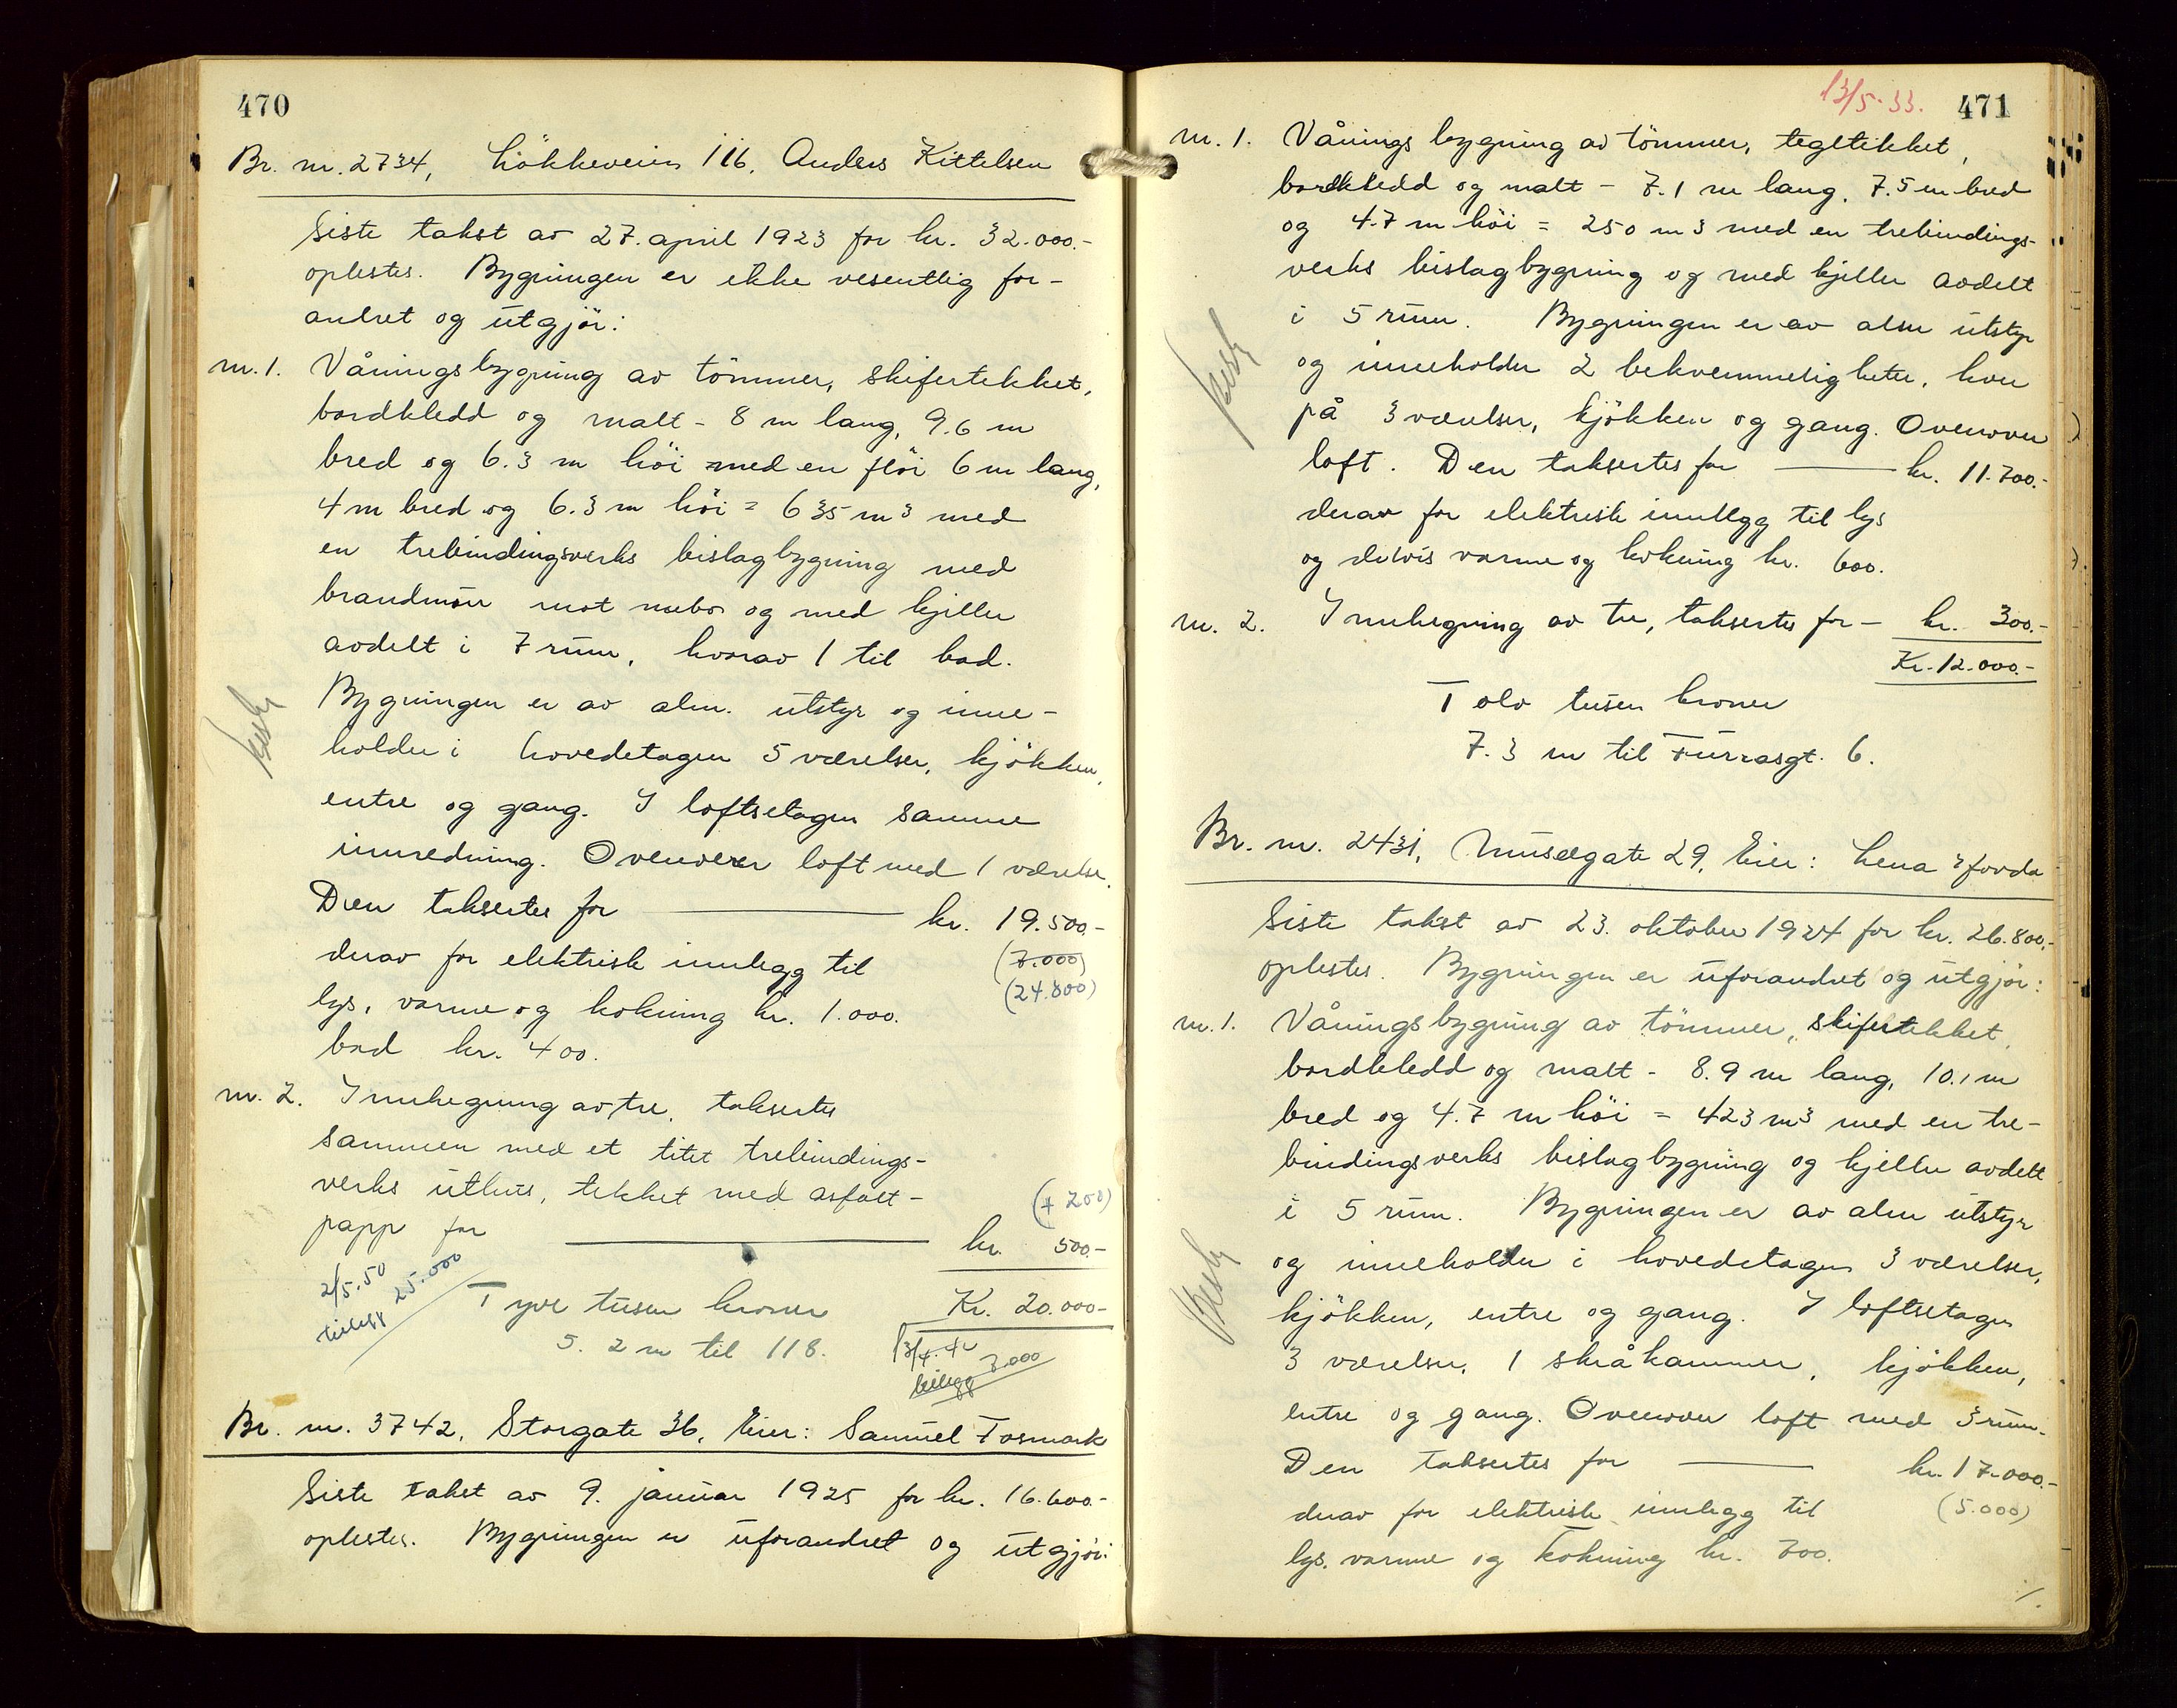 470
Br. nr. 2734, Lökkeveien 116. Anders Kittelsen
Siste takst av 27. april 1923 for kr. 32.000.-
oplestes. Bygningen er ikke vesentlig for-
andret og utgjör:
nr. 1. Våningsbygning av tömmer, skifertekket,
bordkledd og malt - 8 m lang, 9.6 m
bred og 6.3 m höi med en flöi 6 m lang,
4 m bred og 6.3 m höi = 635 m3 med
en trebindingsverks bislagbygning med
brandmur mot nabo og med kjeller
avdelt i 7 rum, hvorav 1 til bad.
Bygningen er av alm. utstyr og inne-
holder i hovedetagen 5 værelser, kjökken,
entre og gang. I loftsetagen samme
innredning. Ovenover loft med 1 værelse.
Den taksertes for kr. 19.500.-
derav for elektrisk innlegg til (7.000)
lys, varme og kokning kr. 1.000. (24.800)
bad kr. 400.
nr. 2. Innhegning av tre, taksertes
sammen med et litet trebindings-
verks uthus, tekket med asfalt-
papp for kr. 500.-
(+ 200)
2/5.50
tillegg 25.000
Tyve tusen kroner Kr. 20.000-
5. 2 m til 118.
13/4.40
tillegg 7.000
Br. nr. 3742, Storgate 36, Eier: Samuel Fosmark
Siste takst av 9. januar 1925 for kr. 16.600.-
oplestes. Bygningen er uforandret og utgjör:
13/5.33. 471
nr. 1. Vånings bygning av tömmer, tegltekket,
bordkledd og malt - 7.1 m lang, 7.5 m bred
og 4.7 m höi = 250 m3 med en trebindings-
verks bislagbygning og med kjeller avdelt
i 5 rum. Bygningen er av alm utstyr
og inneholder 2 bekvemmeligheter, hver
på 3 værelser, kjökken og gang. Ovenover
loft. Den taksertes for kr. 11.700.-
derav for elektrisk innlegg til lys
og delvis varme og kokning kr. 600.
nr. 2. Innhegning av tre, taksertes for - kr. 300.-
Kr. 12.000.-
Tolv tusen kroner
7.3 m til Furrasgt. 6.
Br. nr. 2431, Musegate 29, Eier: Lena
Siste takst av 23. oktober 1924 for kr. 26.800.-
oplestes. Bygningen er uforandret og utgjör:
nr. 1. Våningsbygning av tömmer, skifertekket,
bordkledd og malt - 8.9 m lang, 10.1 m
bred og 4.7 m höi = 423 m3 med en tre-
bindingsverks bislagbygning og kjeller avdelt
i 5 rum. Bygningen er av alm utstyr
og inneholder i hovedetagen 3 værelser,
kjökken, entre og gang. I loftsetagen
3 værelser, 1 skråkammer, kjökken,
entre og gang. Ovenover loft med 3 rum.
Den taksertes for kr. 17.000.-
derav for elektrisk innlegg til (5.000)
lys, varme og kokning kr. 700.